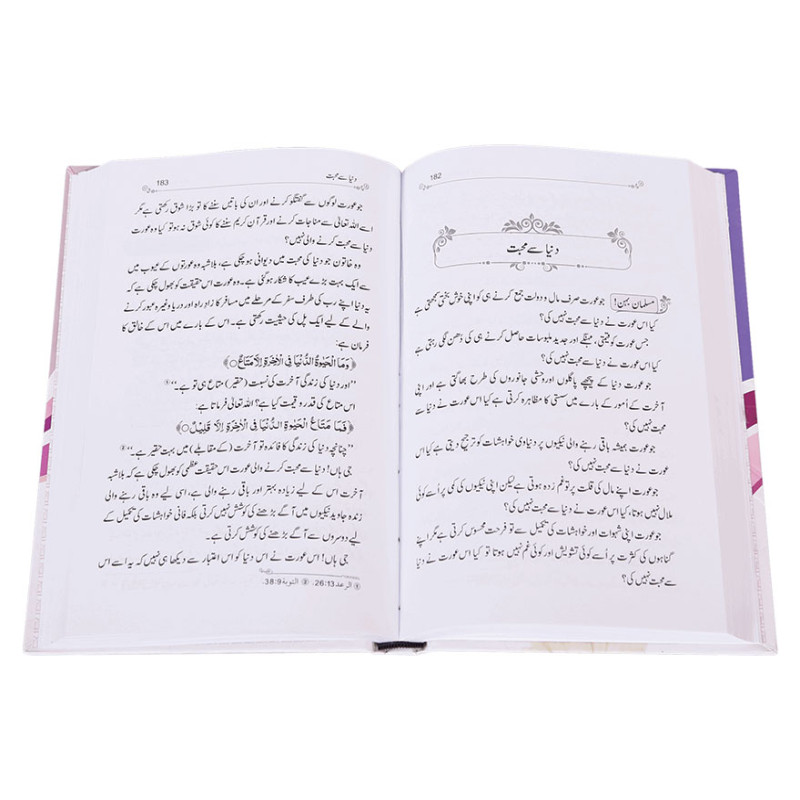 182
دنیا سے محبت
مسلمان بہن! جو عورت صرف مال و دولت جمع کرنے ہی کو اپنی خوش بختی سمجھتی ہے
کیا اس عورت نے دنیا سے محبت نہیں کی؟
جس عورت کو قیمتی، مہنگے اور جدید ملبوسات حاصل کرنے ہی کی دُھن لگی رہتی ہے
کیا اس عورت نے دنیا سے محبت نہیں کی؟
جو عورت دنیا کے پیچھے پاگلوں اور وحشی جانوروں کی طرح بھاگتی ہے اور اپنی
آخرت کے اُمور کے بارے میں سستی کا مظاہرہ کرتی ہے کیا اس عورت نے دنیا سے
محبت نہیں کی؟
جو عورت ہمیشہ باقی رہنے والی نیکیوں پر دنیاوی خواہشات کو ترجیح دیتی ہے کیا اس
عورت نے دنیا سے محبت نہیں کی؟
جو عورت اپنے مال کی قلت پر تو غم زدہ ہوتی ہے لیکن اپنی نیکیوں کی کمی پر اُسے کوئی
ملال نہیں ہوتا، کیا اس عورت نے دنیا سے محبت نہیں کی؟
جو عورت اپنی شہوات اور خواہشات کی تکمیل سے تو فرحت محسوس کرتی ہے مگر اپنے
گناہوں کی کثرت پر اُسے کوئی تشویش اور کوئی غم نہیں ہوتا تو کیا اس عورت نے دنیا
سے محبت نہیں کی؟
دنیا سے محبت 183
جو عورت لوگوں سے گفتگو کرنے اور ان کی باتیں سننے کا تو بڑا شوق رکھتی ہے مگر
اسے اللہ تعالیٰ سے مناجات کرنے اور قرآن کریم سننے کا کوئی شوق نہ ہو تو کیا وہ عورت
دنیا سے محبت کرنے والی نہیں؟
وہ خاتون جو دنیا کی محبت میں دیوانی ہو چکی ہے، بلاشبہ وہ عورتوں کے عیوب میں
سے ایک بہت بڑے عیب کا شکار ہو گئی ہے۔ وہ عورت اس حقیقت کو بھول چکی ہے کہ
یہ دنیا اپنے رب کی طرف سفر کے مرحلے میں مسافر کا زادِ راہ اور دریا وغیرہ عبور کرنے
والے کے لیے ایک پل کی حیثیت رکھتی ہے۔ اس کے بارے میں اس کے خالق کا
فرمان ہے:
﴿وَمَا الْحَيٰوةُ الدُّنْيَا فِي الْاٰخِرَةِ اِلَّا مَتَاعٌ ○﴾
''اور دنیا کی زندگی آخرت کی نسبت (حقیر) متاع ہی تو ہے۔'' ①
اس متاع کی قدر و قیمت کیا ہے؟ اللہ تعالیٰ فرماتا ہے:
﴿فَمَا مَتَاعُ الْحَيٰوةِ الدُّنْيَا فِي الْاٰخِرَةِ اِلَّا قَلِيْلٌ ○﴾
''چنانچہ دنیا کی زندگی کا فائدہ تو آخرت (کے مقابلے) میں بہت حقیر ہے۔'' ②
جی ہاں! دنیا سے محبت کرنے والی عورت اس حقیقت عظمیٰ کو بھول چکی ہے کہ بلاشبہ
آخرت اس کے لیے زیادہ بہتر اور باقی رہنے والی ہے، اسی لیے وہ باقی رہنے والی
زندہ جاوید نیکیوں میں آگے بڑھنے کی کوشش نہیں کرتی بلکہ فانی خواہشات کی تکمیل کے
لیے دوسروں سے آگے بڑھنے کی کوشش کرتی ہے۔
جی ہاں! اس عورت نے اس دنیا کو اس اعتبار سے دیکھا ہی نہیں کہ یہ اسے اس
① الرعد 26:13. ② التوبة 38:9.